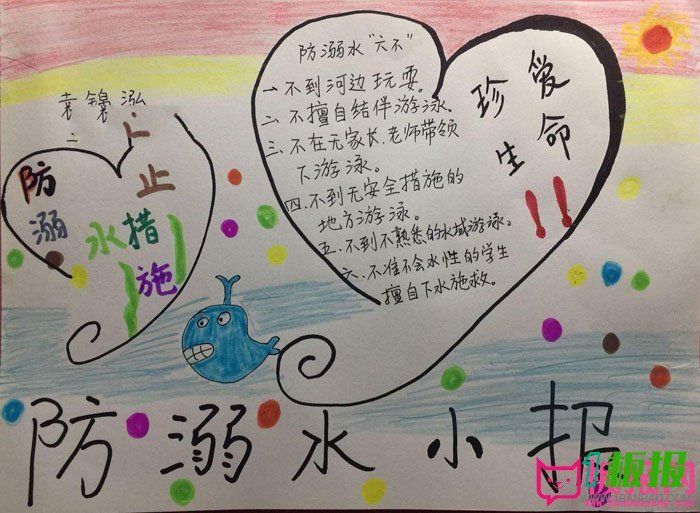 防溺水“六不”
一、不到河边玩耍。
二、不擅自结伴游泳。
三、不在无家长、老师带领
下游泳。
四、不到无安全措施的
地方游泳。
五、不到不熟悉的水域游泳。
六、不准不会水性的学生
擅自下水施救。
珍爱
生命
!!
袁锦泓
防止
溺
水措
施
防溺水小招
板报
WWW.1BANBAO.COM